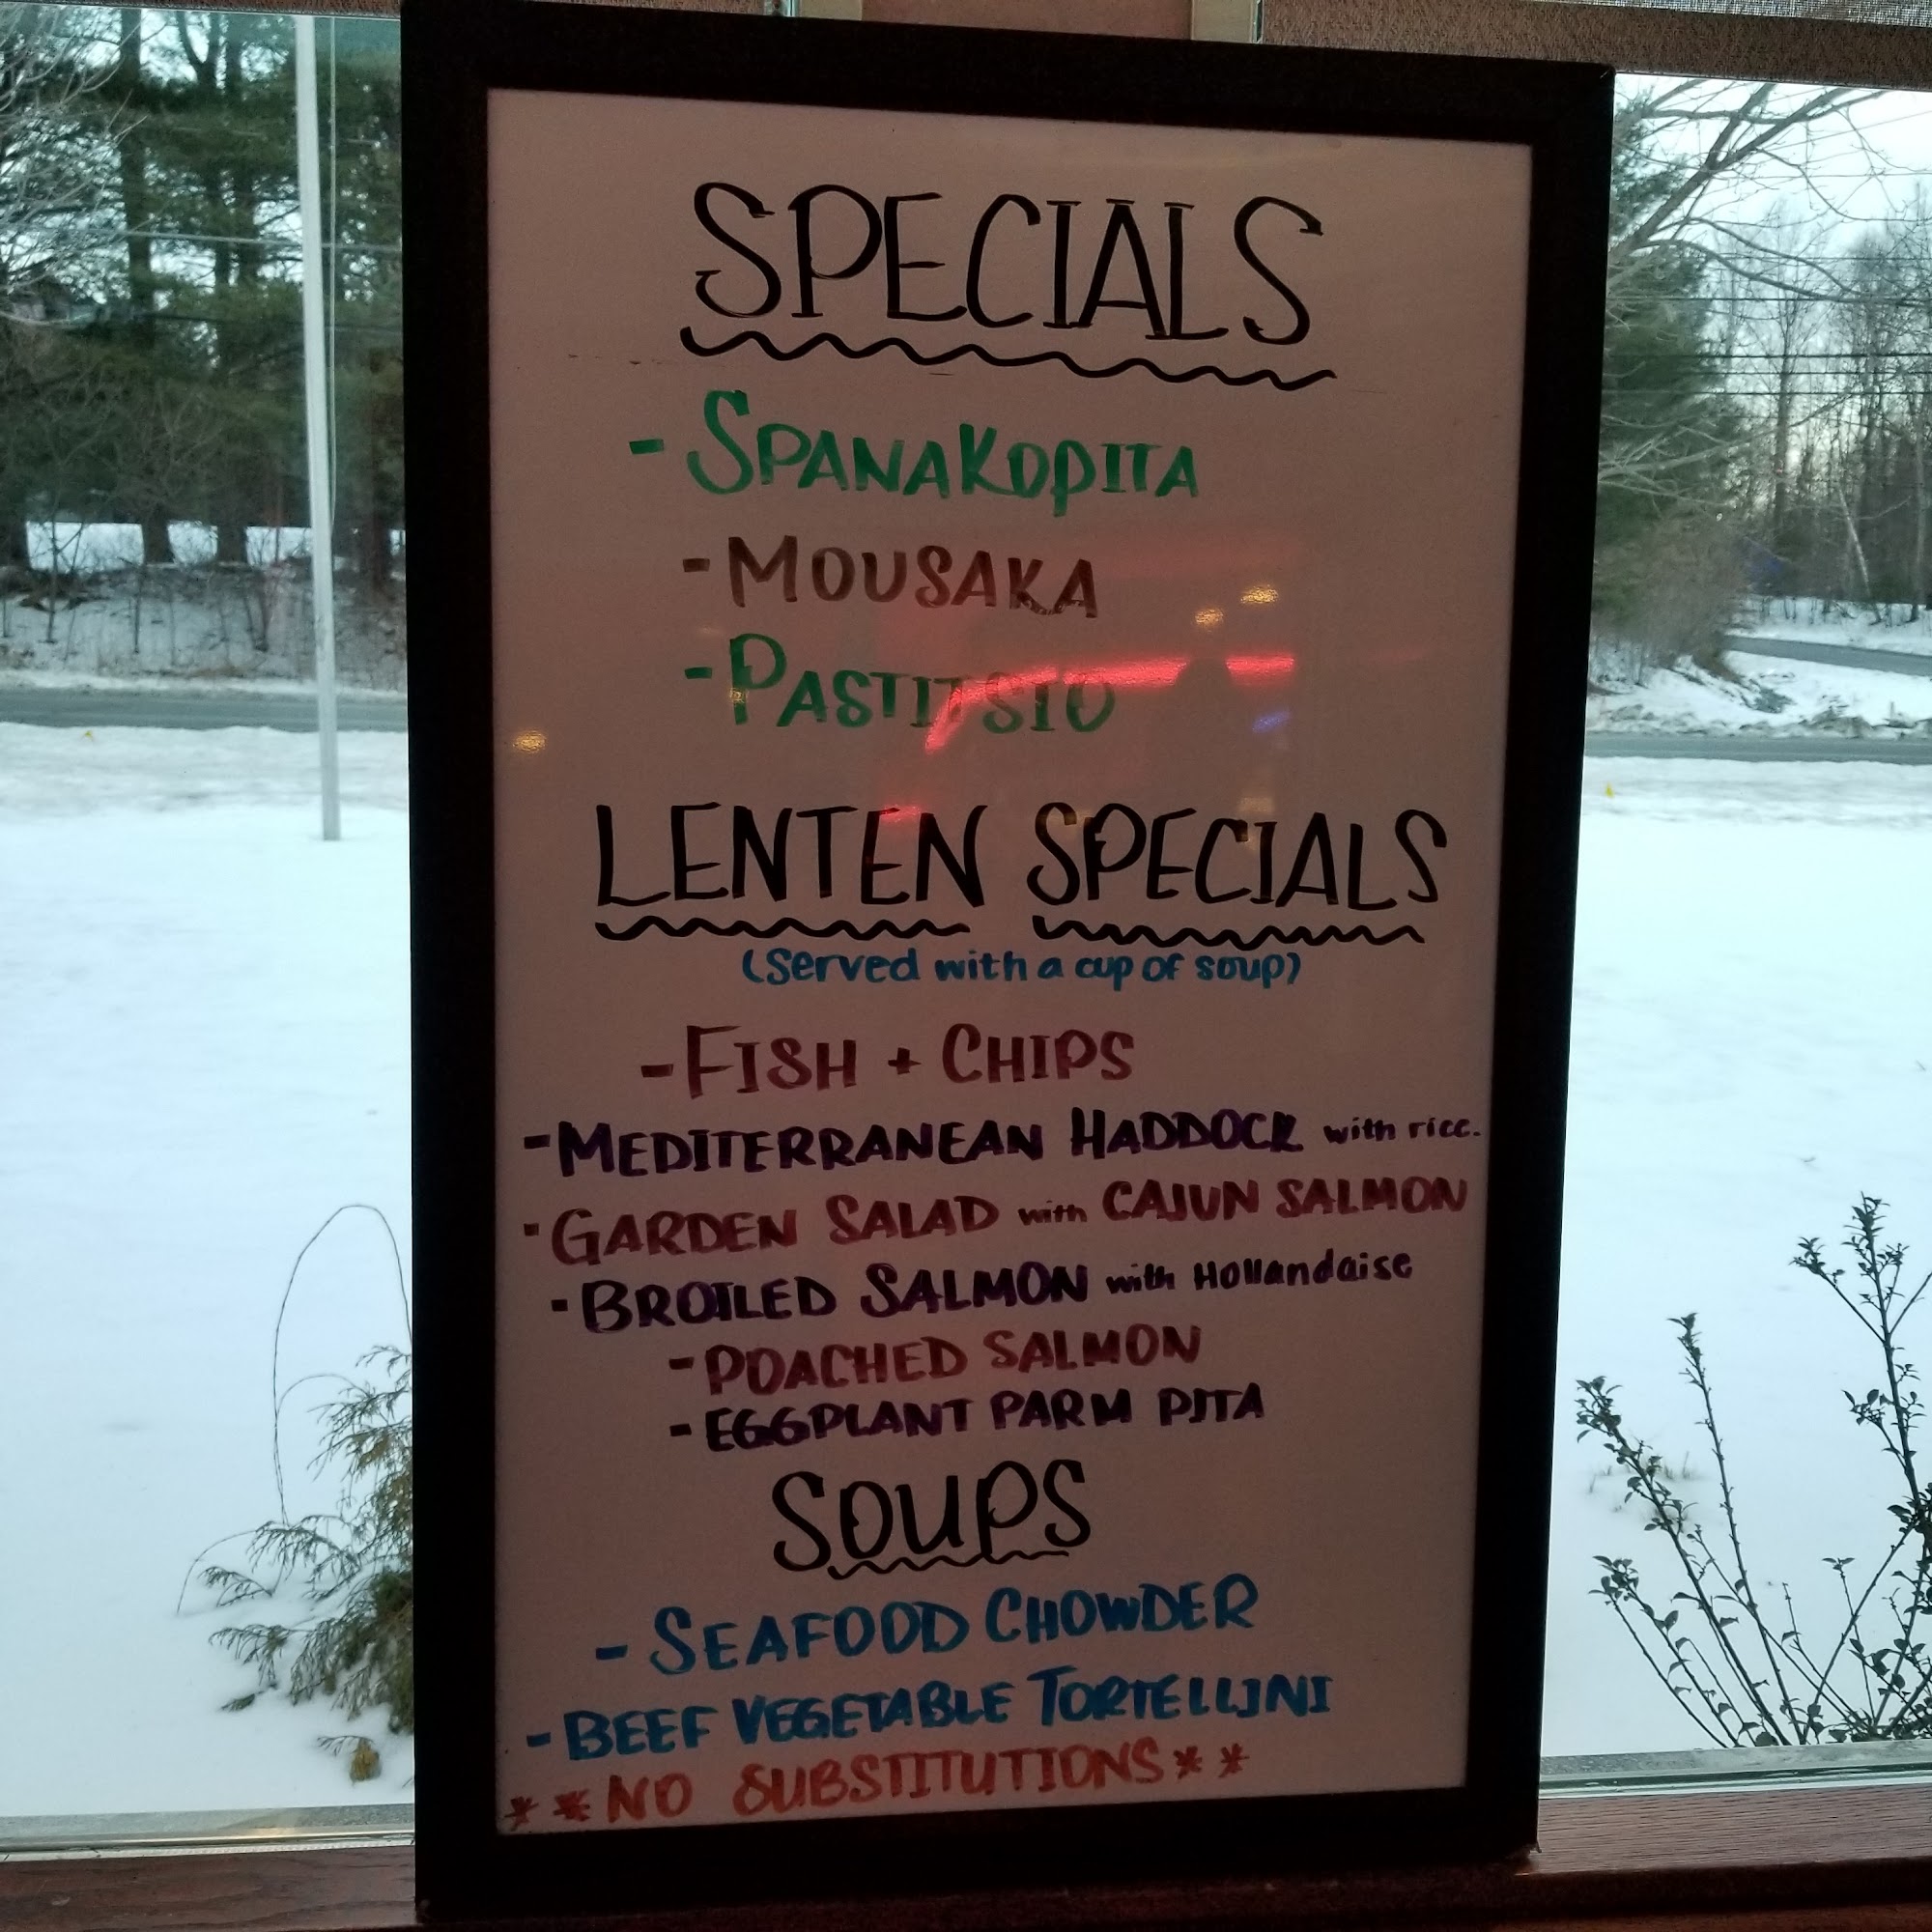 SPECIALS
- SPANAKOPITA
- MOUSAKA
- PASTITSIO
LENTEN SPECIALS
(Served with a cup of soup)
- FISH + CHIPS
- MEDITERRANEAN HADDOCK with rice.
- GARDEN SALAD with CAJUN SALMON
- BROILED SALMON with Hollandaise
- POACHED SALMON
- EGGPLANT PARM PITA
SOUPS
- SEAFOOD CHOWDER
- BEEF VEGETABLE TORTELLINI
**NO SUBSTITUTIONS**